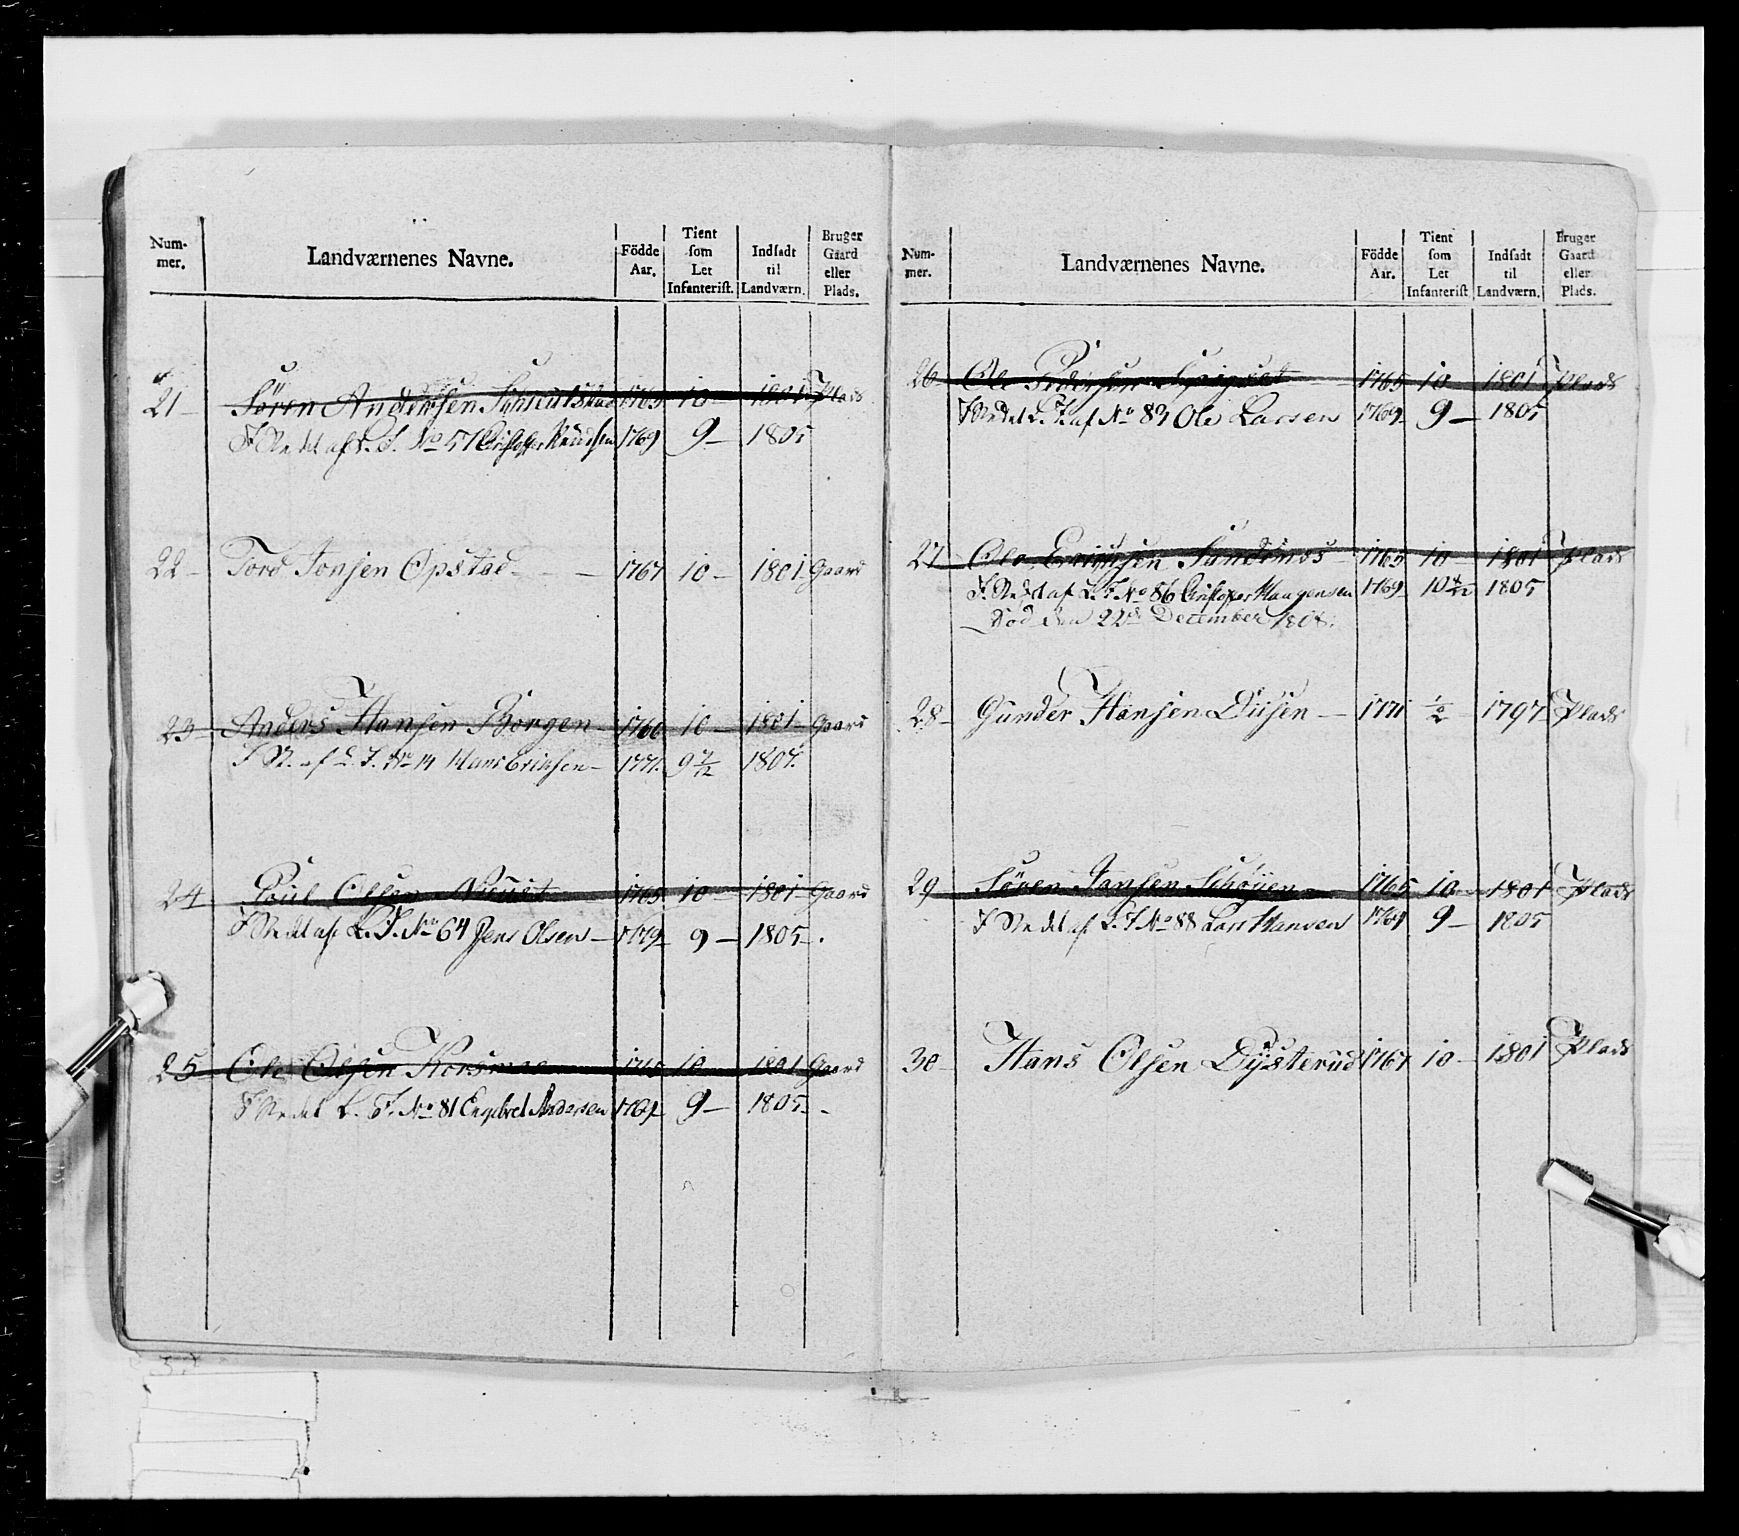 Num-mer. Landværnenes Navne. Födde Aar. Tient som Let Infanterist. Indsadt til Landværn. Bruger Gaard eller Plads.
21 Sören Andersen 1765 10 1801 Plads
I Stedet af L. I. No 57 Christopher Knudsen 1769 9 1805
22 Tord Jonsen Opstad 1767 10 1801 Gaard
23 Anders Hansen Borgen 1766 10 1801 Gaard
I St. af L. I. No 14 Hans Eriksen 1771. 9 7/12 1804.
24 Poul Olsen 1765 10 1801 Gaard
I Stedet af L. I. No 64 Jens Olsen 1769 9 1805.
25 Ole Olsen Korsmoe 1765 10 1801 Gaard
I Stedet L. I. No 81 Engebret Andersen 1769 9 1805
Num-mer. Landværnenes Navne. Födde Aar. Tient som Let Infanterist Indsadt til Landværn. Bruger Gaard eller Plads.
26 Ole Pedersen 1765 10 1801 Plads
I Stedet L. I. af No 83 Ole Larsen 1769 9 1805
27 Ole Erichsen Sundemos 1765 10 1801 Plads
I Stedet af L. I. No 86 Christopher Haagensen 1769 10 1805
Död den 22de December
28 Gunder Hansen Diisen 1771 1/2 1797 Plads
29 Sören Jansen Schöyen 1765 10 1801 Plads
I Stedet af L. I No 88 Lars Hansen 1769 9 1805
30 Hans Olsen Dysterud 1767 10 1801 Plads